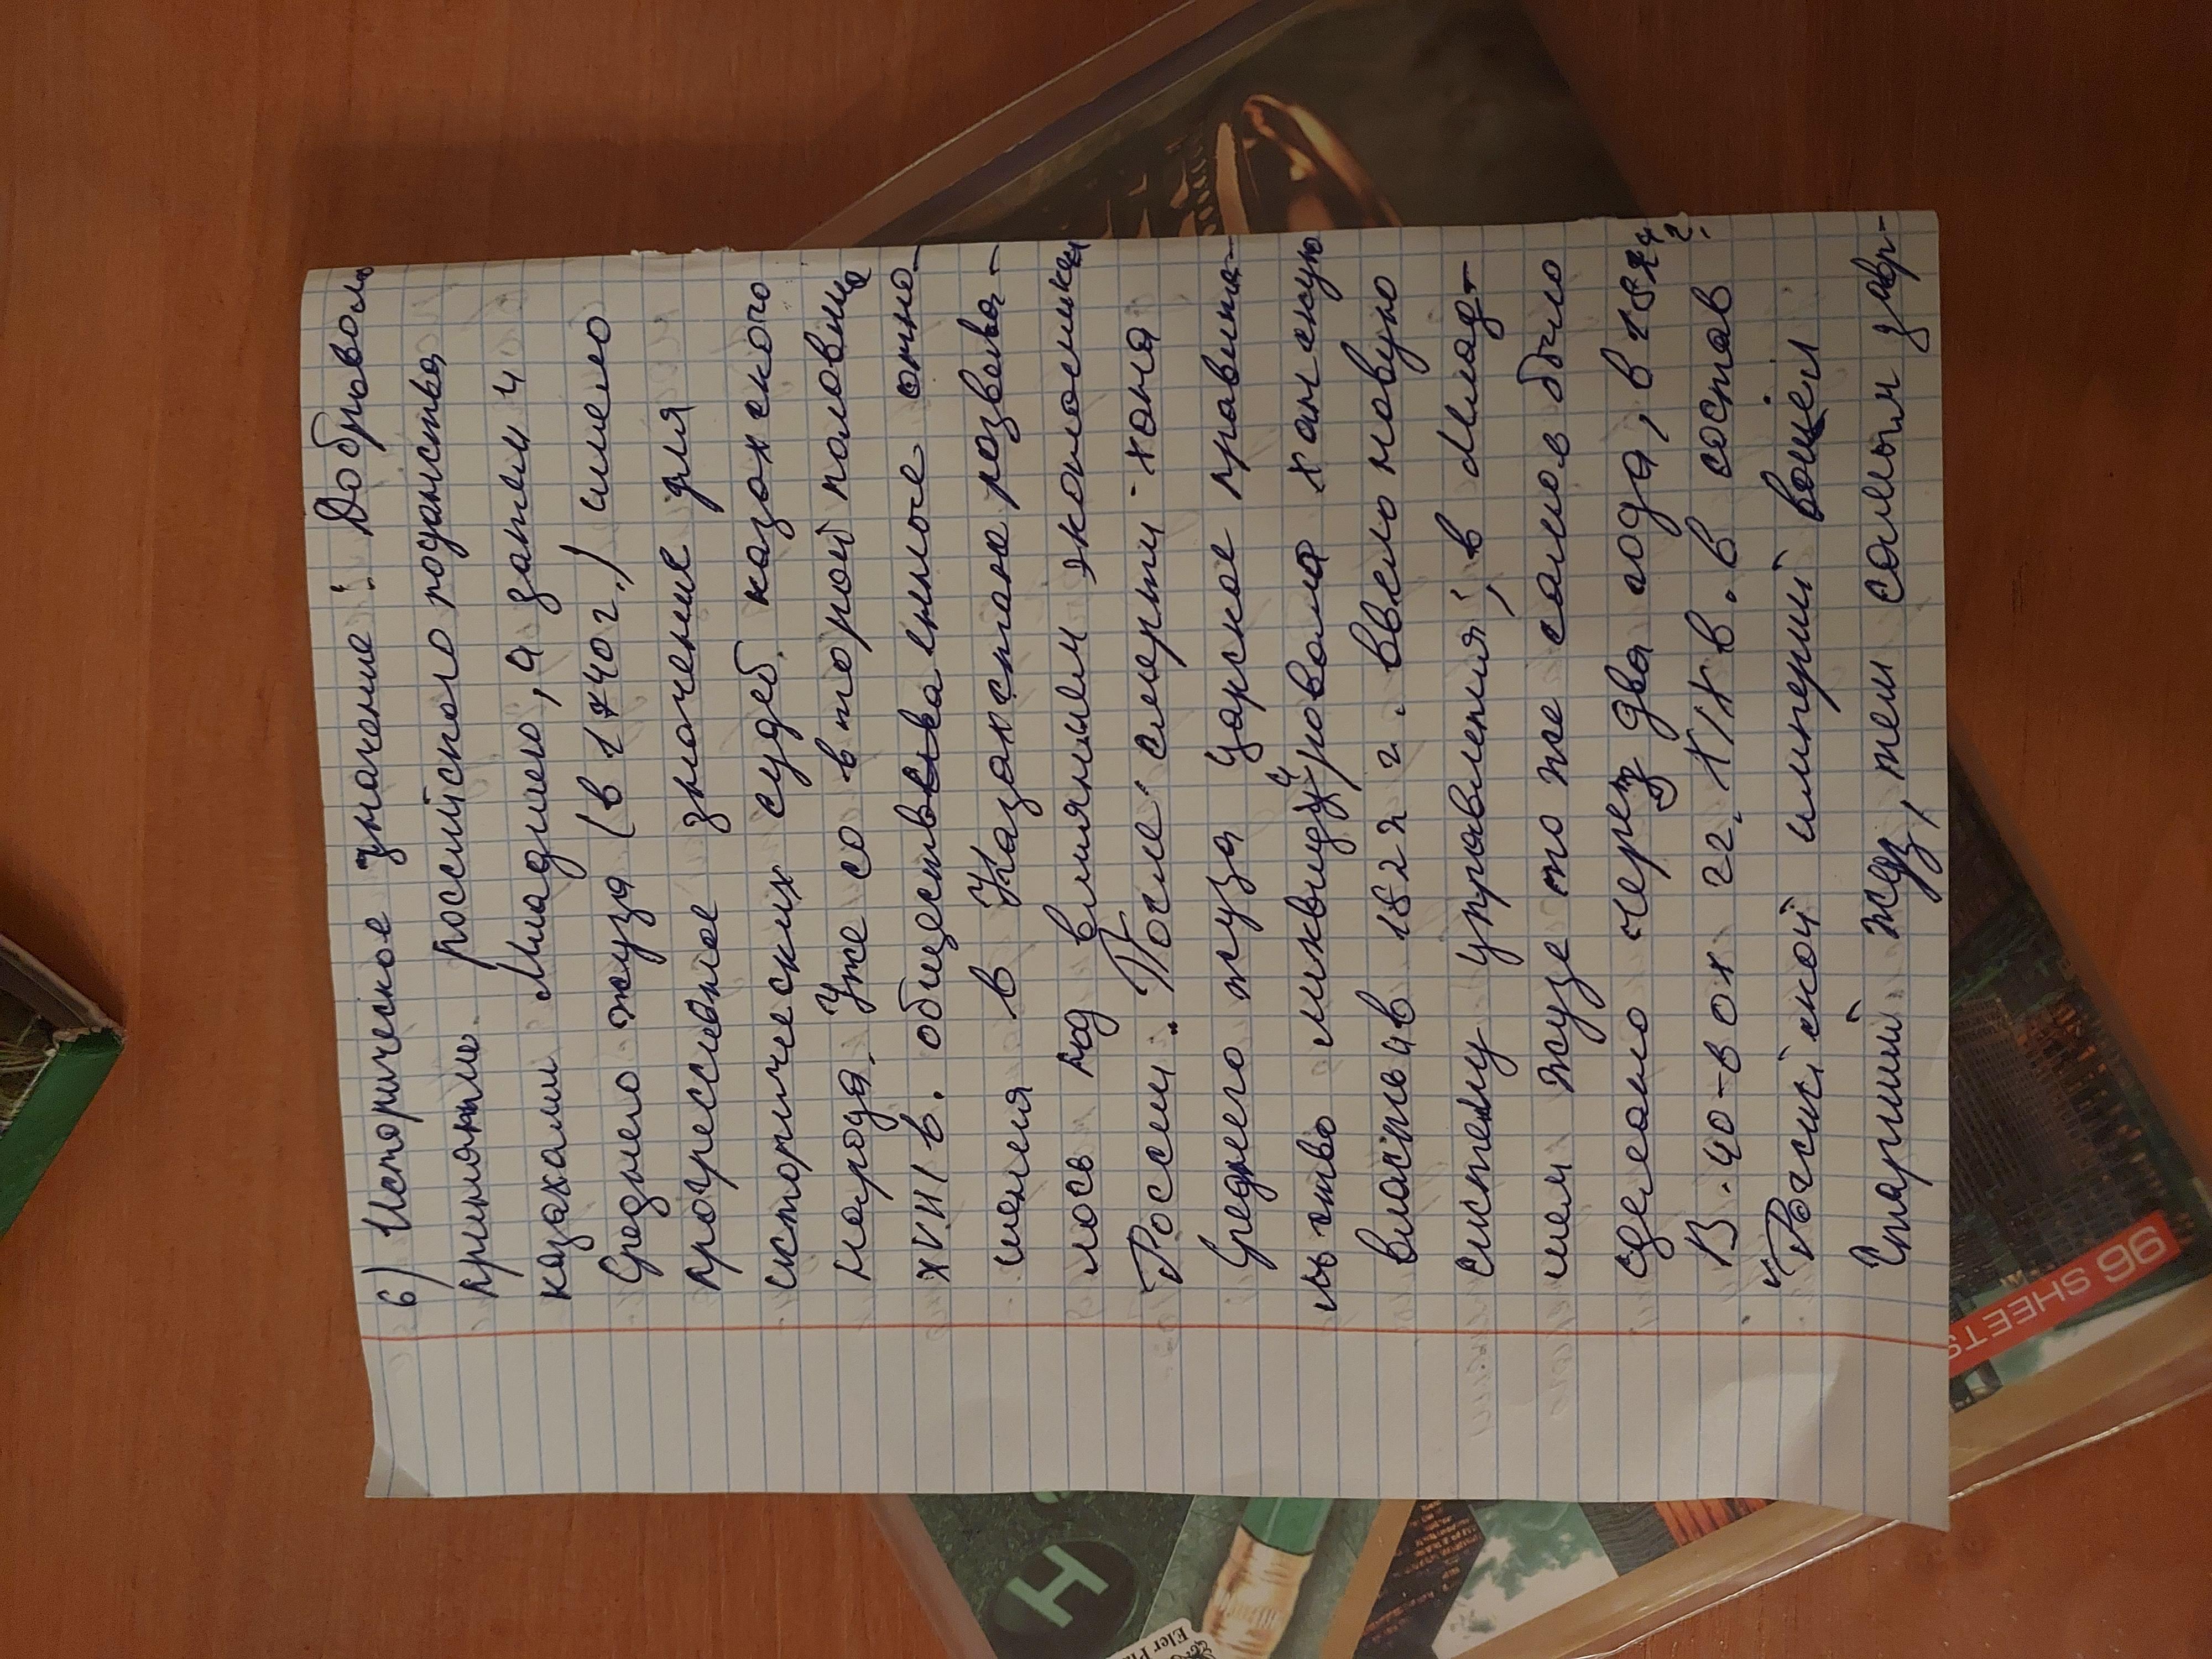 6) Историческое значение: Добровольн
принятие российского подданства
казахами Младшего, а затем и
Среднего жуза (в 1740г.) имело
прогрессивное значение для
исторических судеб казахского
народа. Уже со второй половины
XVIII в. общественные отно-
шения в Казахстане развива-
лось под влиянием экономики
России. После смерти хана
Среднего жуза царское правите-
льство ликвидировало ханскую
власть и в 1822 г. ввело новую
систему управления; в Млад-
шем жузе то же самое было
сделано через два года, в 1824
г.
В 40-в ох гг. XIX в. в состав
Российской империи вошёл и
Старший жуз, тем самым завр-
96 SHEETS
H
Eler